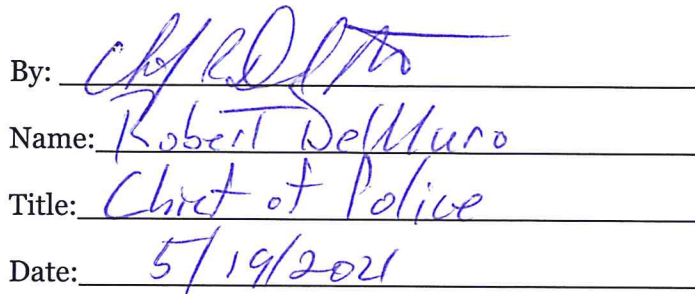 By: Chf
Name: Robert DelMuro
Title: Chief of Police
Date: 5/19/2021